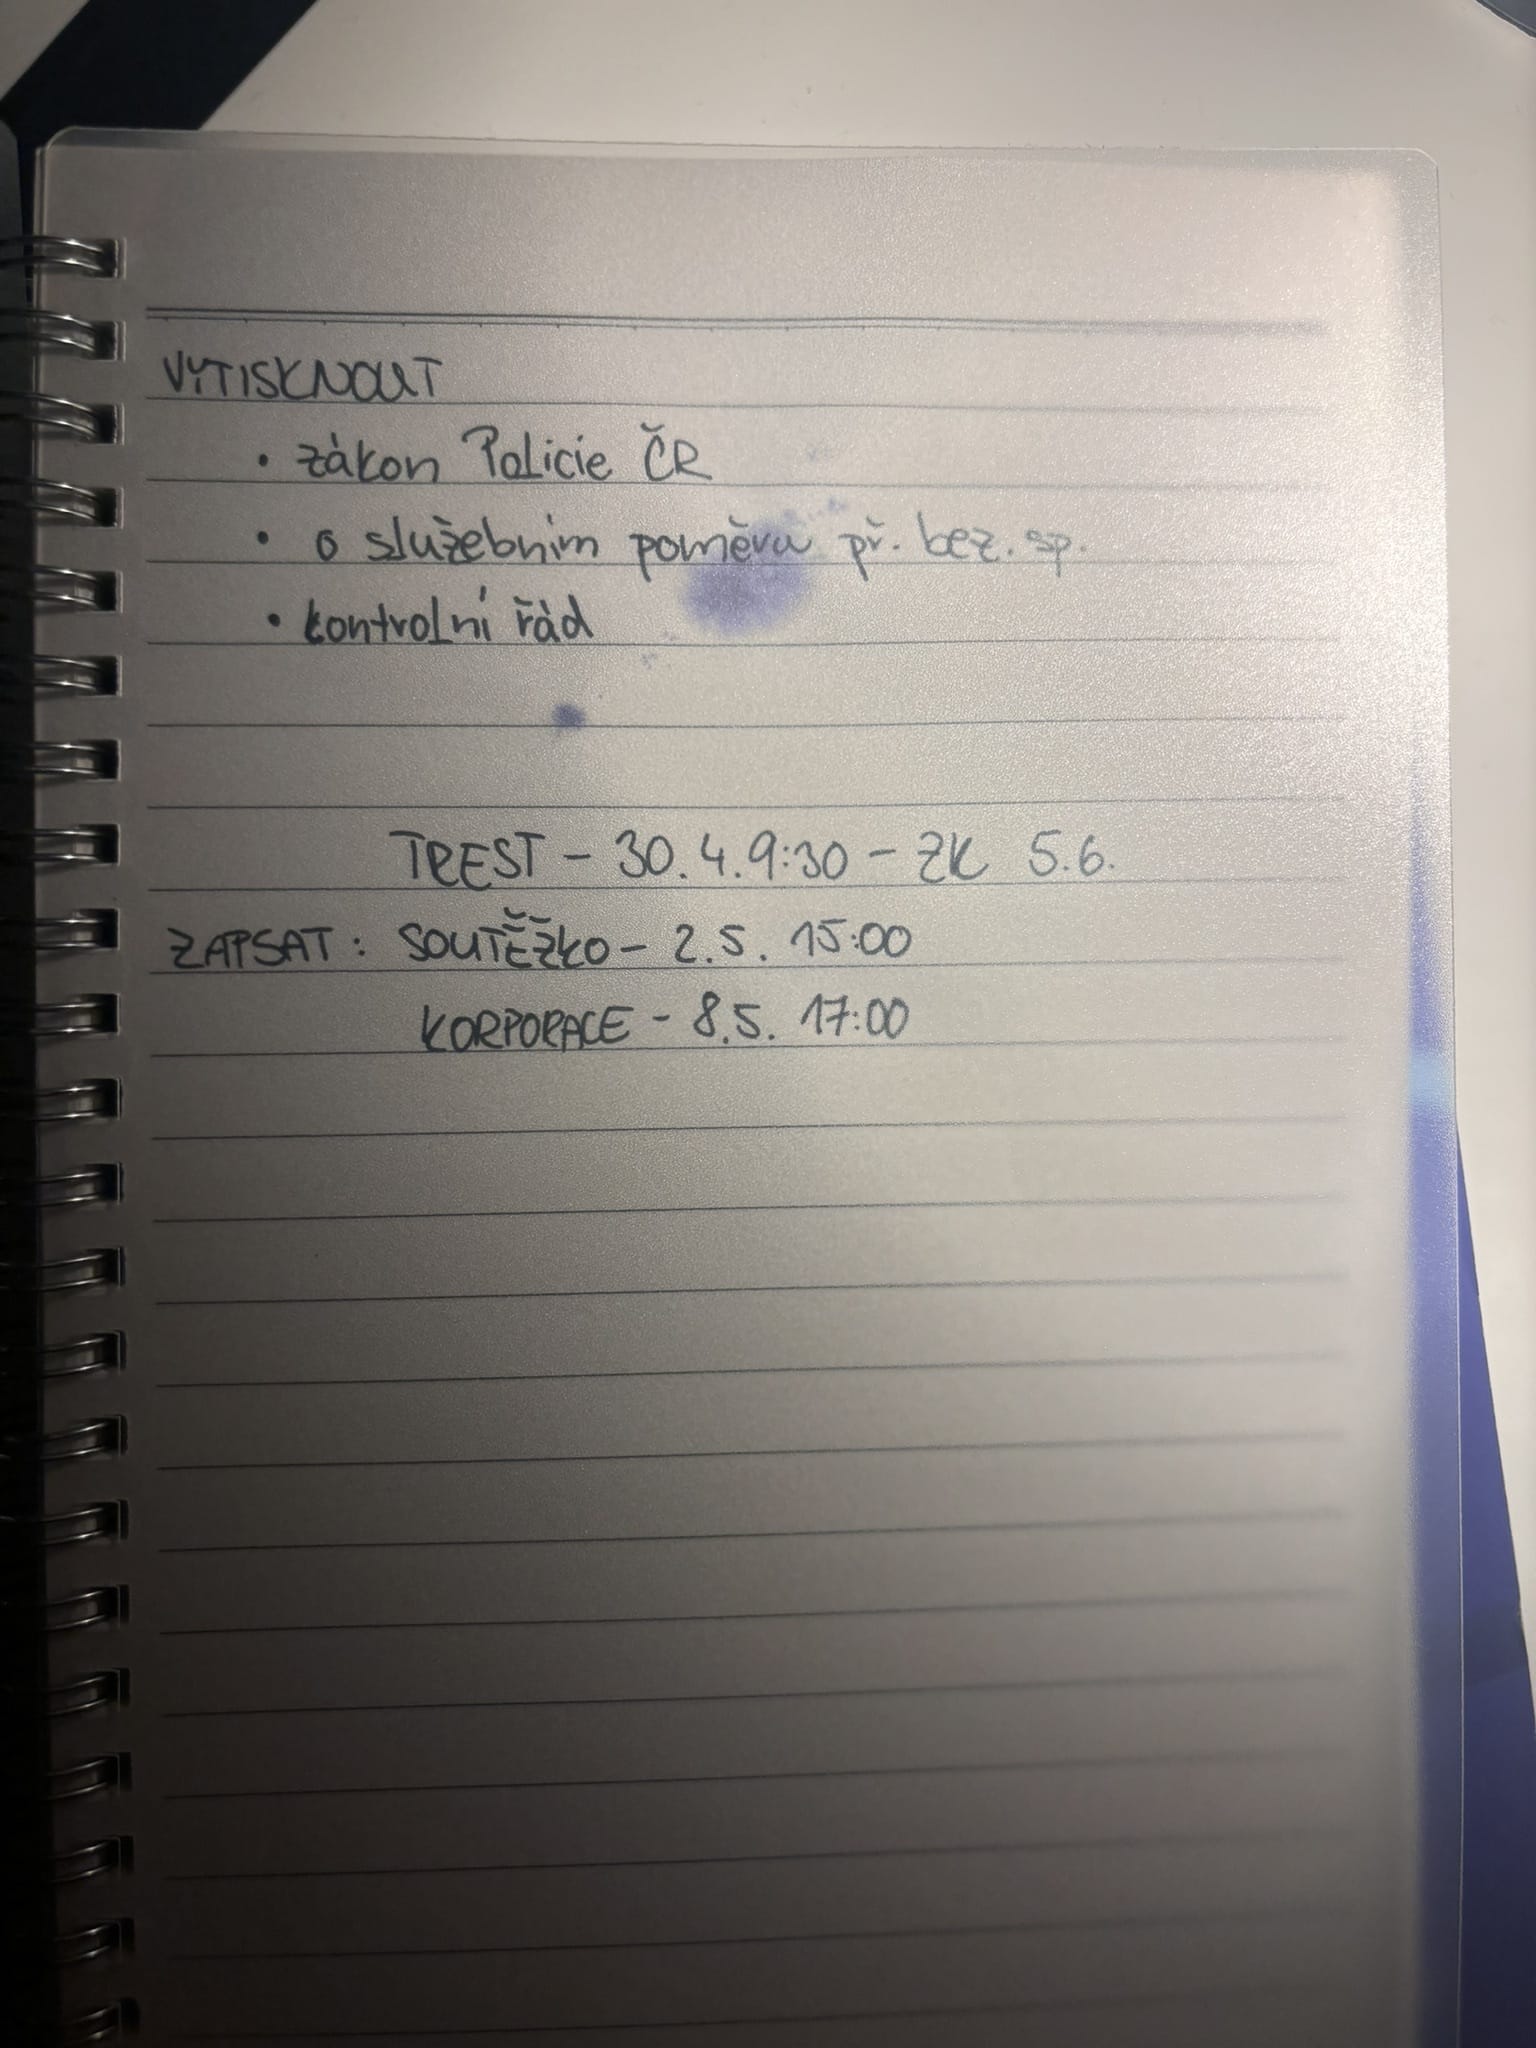 VYTISKNOUT
• zákon Policie ČR
• o služebním poměru př. bez. sp.
• kontrolní řád
TREST - 30.4. 9:30 - ZK 5.6.
ZAPSAT: SOUTĚŽKO - 2.5. 15:00
KORPORACE - 8.5. 17:00